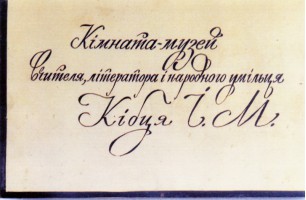 Кімната-музей
Вчителя, літератора і народного умільця
Кібця І. М.